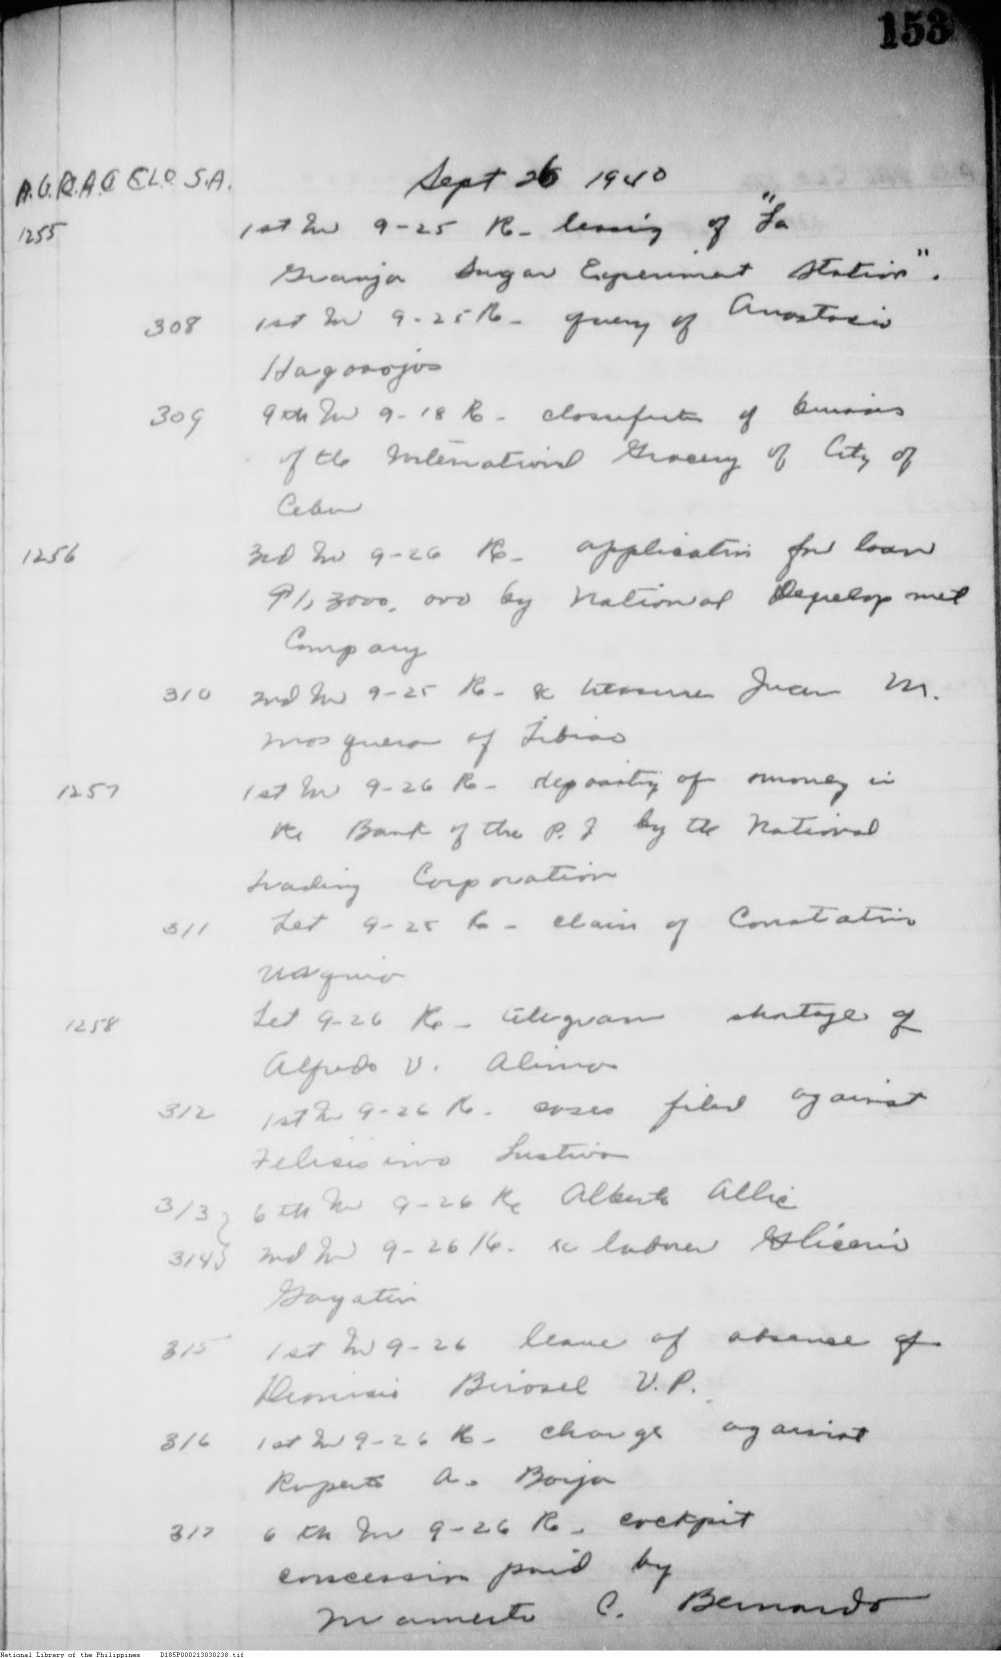 153
Sept 26 1940
A.G.R.A.G E.L.O. S.A.
1255 1st In 9-25 Re- leasing of "La
Granja Sugar Experiment Station".
308 1st In 9-25 Re- query of Anastacio
Hagonojos
309 9th In 9-18 Re- of business
of the International Grocery of City of
Cebu
1256 3rd In 9-26 Re- application for loan
₱1,3000,000 by National Development
Company
310 2nd In 9-25 Re- treasurer Juan M.
Mosquera of Libiao
1257 1st In 9-26 Re- depositing of money in
the Bank of the P.I by the National
Trading Corporation
311 Let 9-25 Re- claim of
1258 Let 9-26 Re- telegram shortage of
Alfredo V. Alimos
312 1st In 9-26 Re- cases filed against
Felisisimo
313 6th In 9-26 Re Alberto Allic
314 2nd In 9-26 Re- laborer Glicerio
Gayatin
315 1st In 9-26 leave of absence of
Dionisio Birosel V.P.
316 1st In 9-26 Re- charge against
Ruperto A. Borja
317 6th In 9-26 Re- cockpit
concession paid by
Mamerto C. Bernardo
National Library of the Philippines D185P000213030238.tif